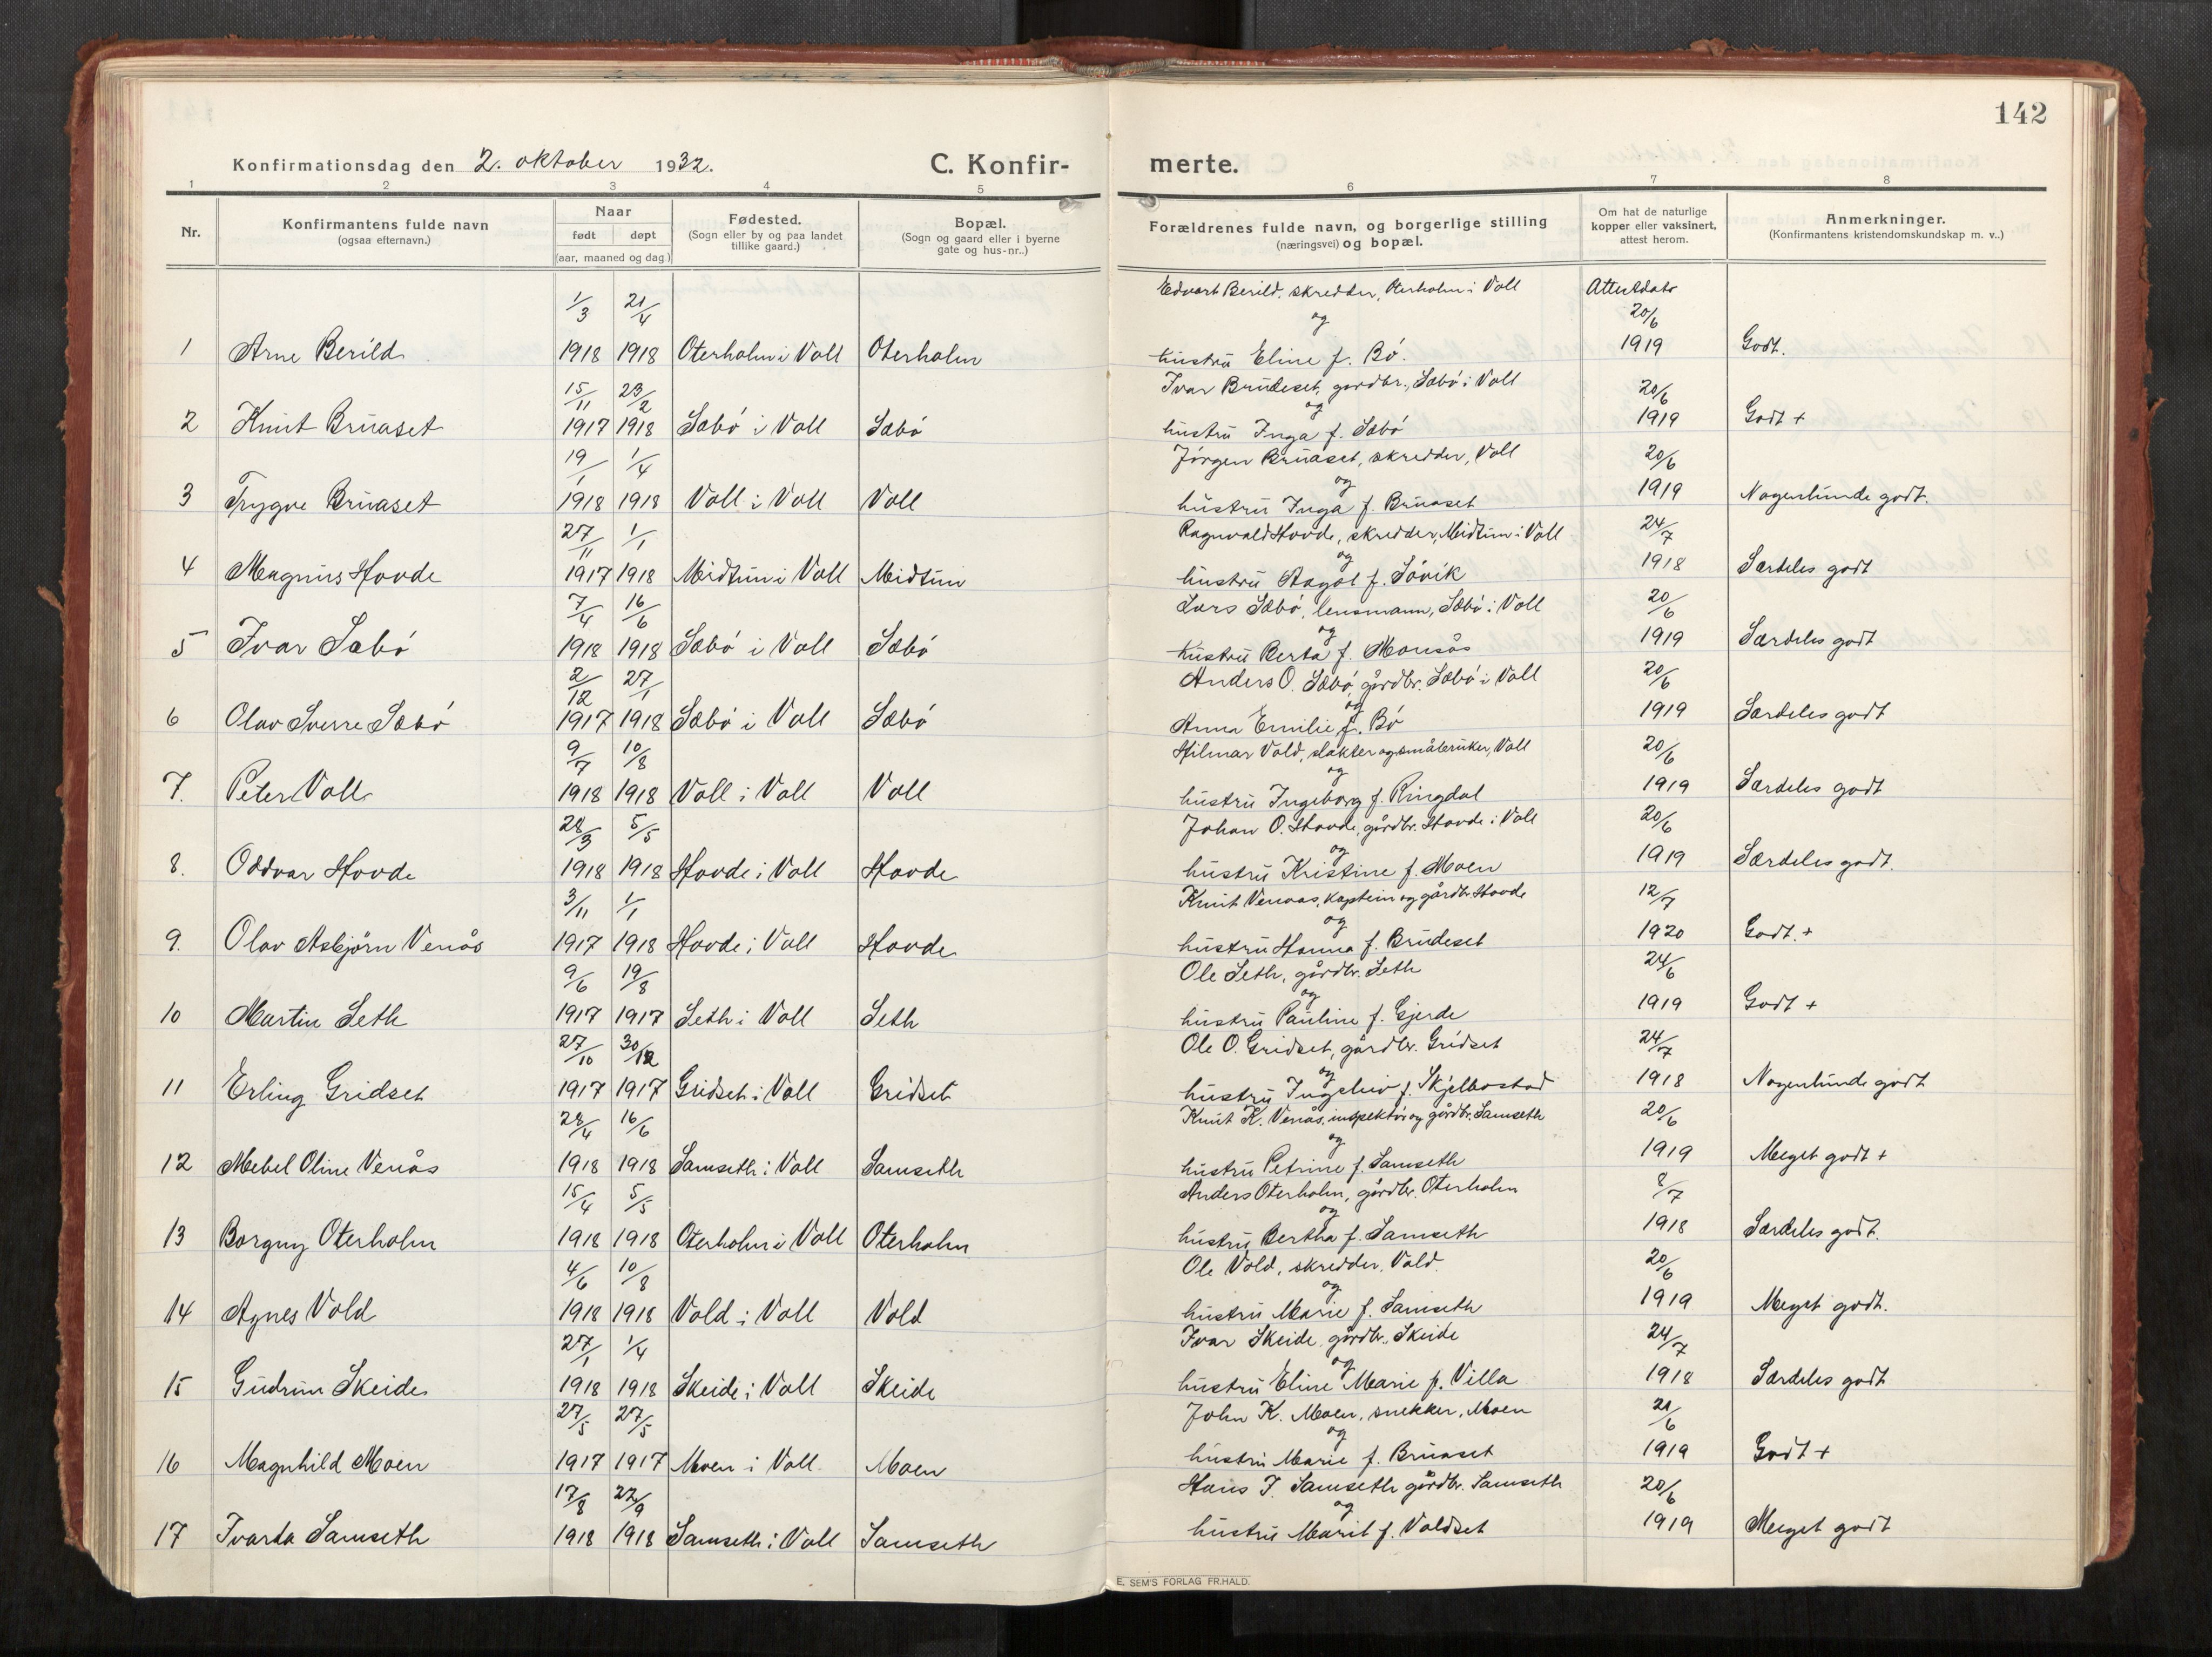 142
Konfirmationsdag den 2. oktober 1932. C. Konfir- merte.
1 2 3 4 5 6 7 8
Nr. Konfirmantens fulde navn (ogsaa efternavn.) Naar født døpt (aar, maaned og dag) Fødested. (Sogn eller by og paa landet tillike gaard.) Bopæl. (Sogn og gaard eller i byerne gate og hus-nr..) Forældrenes fulde navn, og borgerlige stilling (næringsvei) og bopæl. Om hat de naturlige kopper eller vaksinert, attest herom. Anmerkninger. (Konfirmantens kristendomskundskap m. v..)
1/3 21/4 Edvart Berild, skredder, Oterholm i Voll Attestdato
og 20/6
1 Arne Berild 1918 1918 Oterholm i Voll Oterholm hustru Eline f. Bö. 1919 Godt.
15/11 23/2 Ivar Brudeset, gardbr., Sæbö i Voll 20/6
og
2 Knut Bruaset 1917 1918 Sæbö i Voll Sæbö hustru Inga f. Sæbö 1919 Godt +
19/1 1/4 Jörgen Bruaset, skredder, Voll 20/6
og
3 Trygve Bruaset 1918 1918 Voll i Voll Voll hustru Inga f. Bruaset 1919 Nogenlunde godt.
27/11 1/1 Ragnvald Hovde, skredder, Midtun i Voll 24/7
og
4 Magnus Hovde 1917 1918 Midtun i Voll Midtun hustru Aagot f. Sövik 1918 Særdeles godt
7/4 16/6 Lars Sæbö, lensmann, Sæbö i Voll 20/6
og
5 Ivar Sæbö 1918 1918 Sæbö i Voll Sæbö hustru Berta f. Monsås 1919 Særdeles godt
2/12 27/1 Anders O. Sæbö, gårdbr. Sæbö i Voll 20/6
og
6 Olav Sverre Sæbö 1917 1918 Sæbö i Voll Sæbö Anna Emilie f. Bö 1919 Særdeles godt
9/7 10/8 Hilmar Vold, slakter og småbruker, Voll 20/6
og
7. Peter Voll 1918 1918 Voll i Voll Voll hustru Ingeborg f. Ringdal 1919 Særdeles godt
28/3 5/5 Johan O. Hovde, gårdbr. Hovde i Voll 20/6
og
8. Oddvar Hovde 1918 1918 Hovde i Voll Hovde hustru Kristine f. Moen 1919 Særdeles godt.
3/11 1/1 Knut Venaas, kaptein og gårdbr. Hovde 12/7
og
9. Olav Asbjörn Venås 1917 1918 Hovde i Voll Hovde hustru Hanna f. Brudeset 1920 Godt. +
9/6 19/8 Ole Seth, gårdbr. Seth 24/6
og
10 Martin Seth 1917 1917 Seth i Voll Seth hustru Pauline f. Gjerde 1919 Godt +
27/10 30/12 Ole O. Gridset, gårdbr. Gridset 24/7
og
11 Erling Gridset 1917 1917 Gridset i Voll Gridset hustru Ingeleiv f. Skjelbostad 1918 Nogenlunde godt
28/4 16/6 Knut K. Venås, inspektör og gårdbr. Samseth 20/6
og
12 Mebel Oline Venås 1918 1918 Samseth i Voll Samseth hustru Petrine f. Samseth 1919 Meget godt +
15/4 5/5 Anders Oterholm, gårdbr. Oterholm 8/7
og
13 Borgny Oterholm 1918 1918 Oterholm i Voll Oterholm hustru Bertha f. Samseth 1918 Særdeles godt.
4/6 10/8 Ole Vold, skredder, Vold. 20/6
og
14 Agnes Vold 1918 1918 Vold i Voll Vold hustru Marie f. Samseth 1919 Meget godt.
27/1 1/4 Ivar Skeide, gårdbr. Skeide 24/7
og
15 Gudrun Skeide 1918 1918 Skeide i Voll Skeide hustru Eline Marie f. Villa 1918 Særdeles godt
27/5 27/5 John K. Moen, snekker, Moen 21/6
og
16 Magnhild Moen 1917 1917 Moen i Voll Moen hustru Marie f. Bruaset 1919 Godt +
17/8 22/9 Hans J. Samseth gårdbr. Samseth 20/6
og
17 Ivarda Samseth 1918 1918 Samseth i Voll Samseth hustru Marit f. Voldset 1919 Meget godt
E. SEM'S FORLAG FR.HALD.